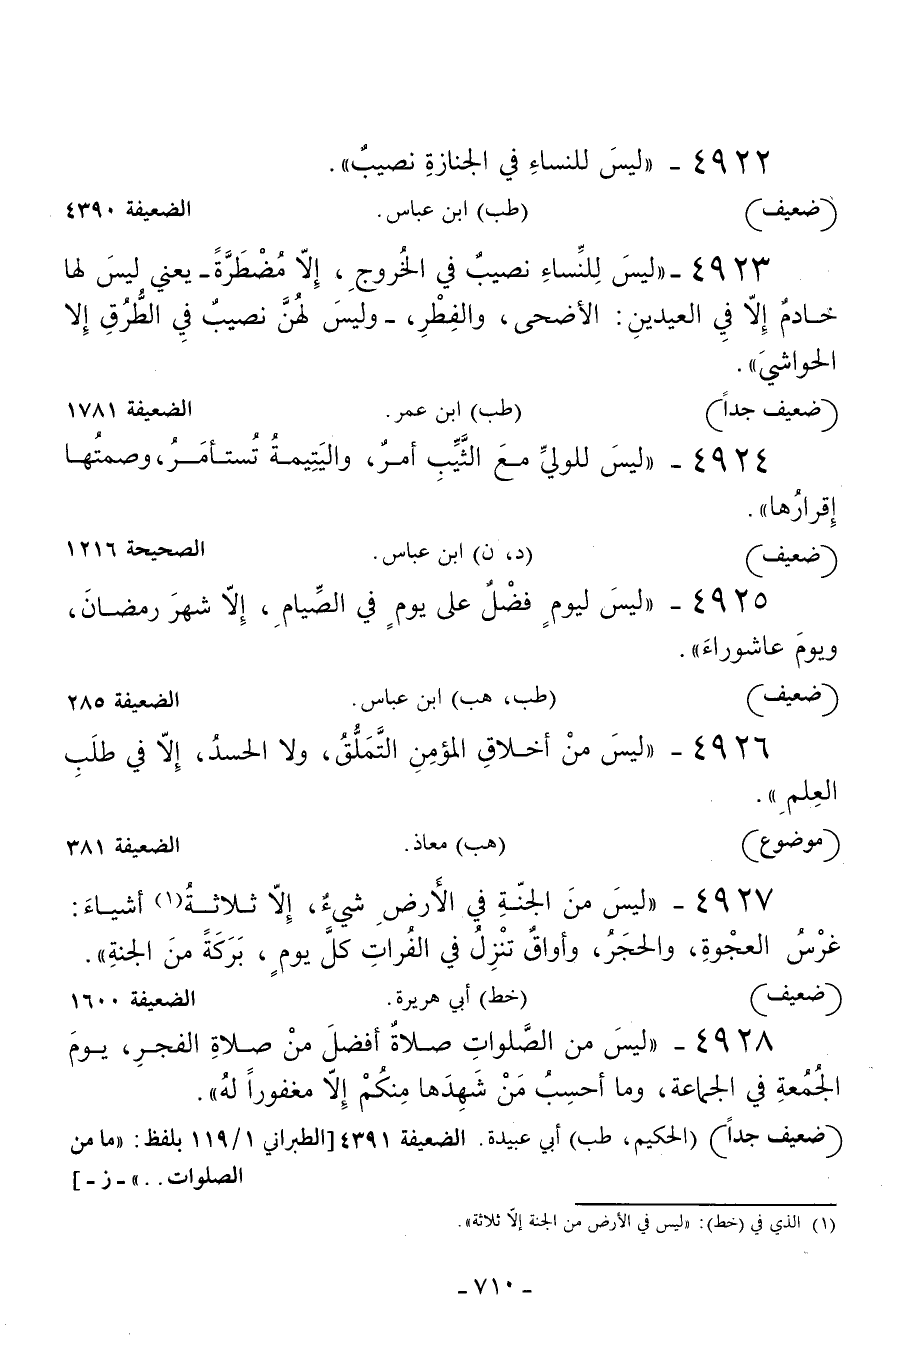 ٤٩٢٢ - «ليسَ للنساءِ في الجنازةِ نصيبٌ».
(ضعيف) (طب) ابن عباس. الضعيفة ٤٣٩٠
٤٩٢٣ - «ليسَ لِلنِّساءِ نصيبٌ في الخُروجِ، إِلّا مُضْطَرَّةً ـ يعني ليسَ لها
خـادمٌ إِلّا في العيدينِ: الأضحى، والفِطْرِ، ـ وليسَ لهُنَّ نصيبٌ في الطُّرُقِ إِلا
الحواشيَ».
(ضعيف جداً) (طب) ابن عمر. الضعيفة ١٧٨١
٤٩٢٤ - «ليسَ للوليِّ مـعَ الثَّيِّبِ أمرٌ، واليَتِيمـةُ تُستـأمَـرُ، وصمتُهـا
إِقرارُها».
(ضعيف) (د، ن) ابن عباس. الصحيحة ١٢١٦
٤٩٢٥ - «ليسَ ليومٍ فضْلٌ على يومٍ في الصِّيامِ، إِلّا شهرَ رمضـانَ،
ويومَ عاشوراءَ».
(ضعيف) (طب، هب) ابن عباس. الضعيفة ٢٨٥
٤٩٢٦ - «ليسَ منْ أخـلاقِ المؤمِنِ التَّمَلُّقُ، ولا الحسدُ، إِلّا في طلَبِ
العِلمِ».
(موضوع) (هب) معاذ. الضعيفة ٣٨١
٤٩٢٧ - «ليسَ منَ الجنّـةِ في الأَرضِ شيءٌ، إِلّا ثـلاثـةُ(١) أشياءَ:
غرْسُ العجْوةِ، والحجَرُ، وأواقٌ تنْزِلُ في الفُراتِ كلَّ يومٍ، بَرَكَةً منَ الجنةِ».
(ضعيف) (خط) أبي هريرة. الضعيفة ١٦٠٠
٤٩٢٨ - «ليسَ من الصَّلواتِ صـلاةٌ أفضلَ منْ صـلاةِ الفجـرِ، يـومَ
الجُمُعةِ في الجماعة، وما أحسِبُ مَنْ شَهِدَها مِنكُمْ إِلّا مغفوراً لهُ».
(ضعيف جداً) (الحكيم، طب) أبي عبيدة. الضعيفة ٤٣٩١ [الطبراني ١/ ١١٩ بلفظ: «ما من
الصلوات..» ـ ز ـ]
(١) الذي في (خط): «ليس في الأرض من الجنة إلّا ثلاثة».
- ٧١٠ -